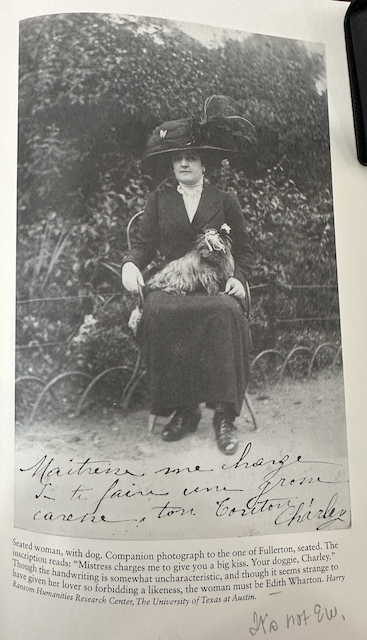 Maitresse me charge
de te faire une grosse
caresse, ton Toutou Charley
Seated woman, with dog. Companion photograph to the one of Fullerton, seated. The
inscription reads: "Mistress charges me to give you a big kiss. Your doggie, Charley."
Though the handwriting is somewhat uncharacteristic, and though it seems strange to
have given her lover so forbidding a likeness, the woman must be Edith Wharton. Harry
Ransom Humanities Research Center, The University of Texas at Austin.
It's not EW.